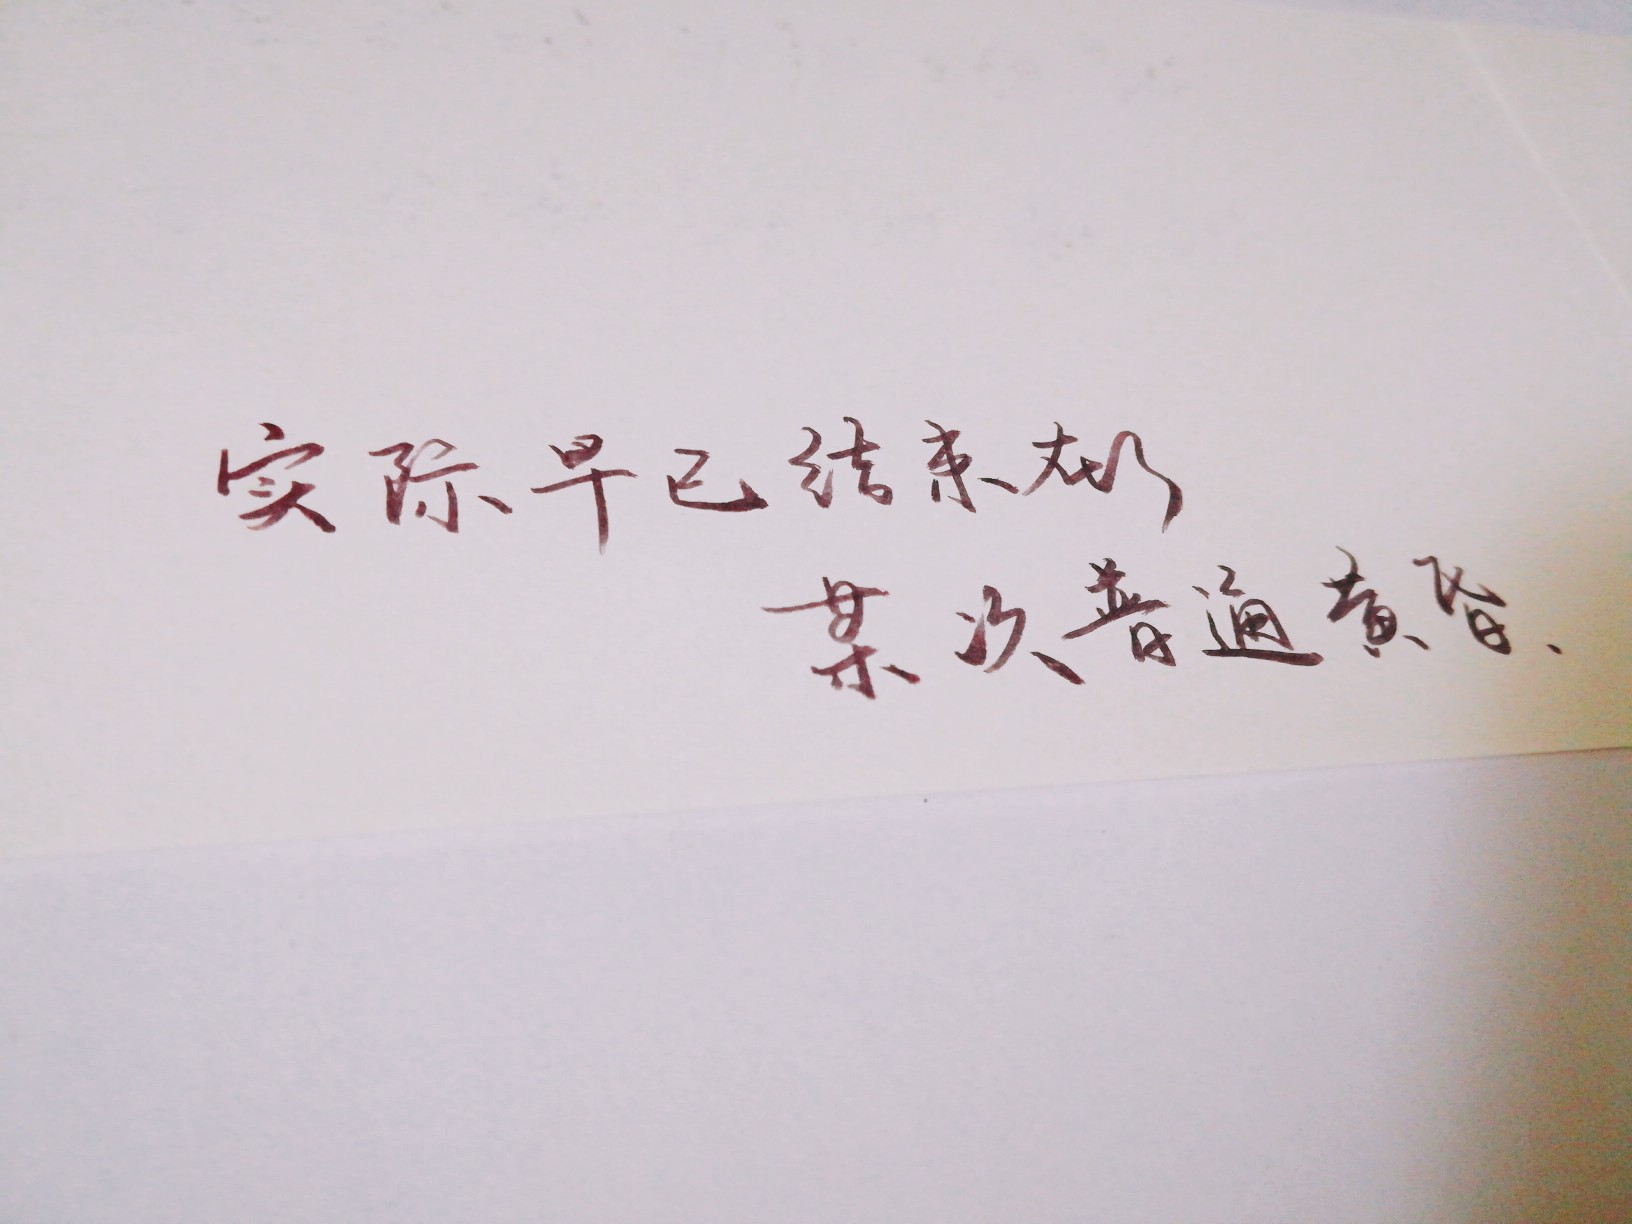 实际早已结束在
某次普通黄昏.